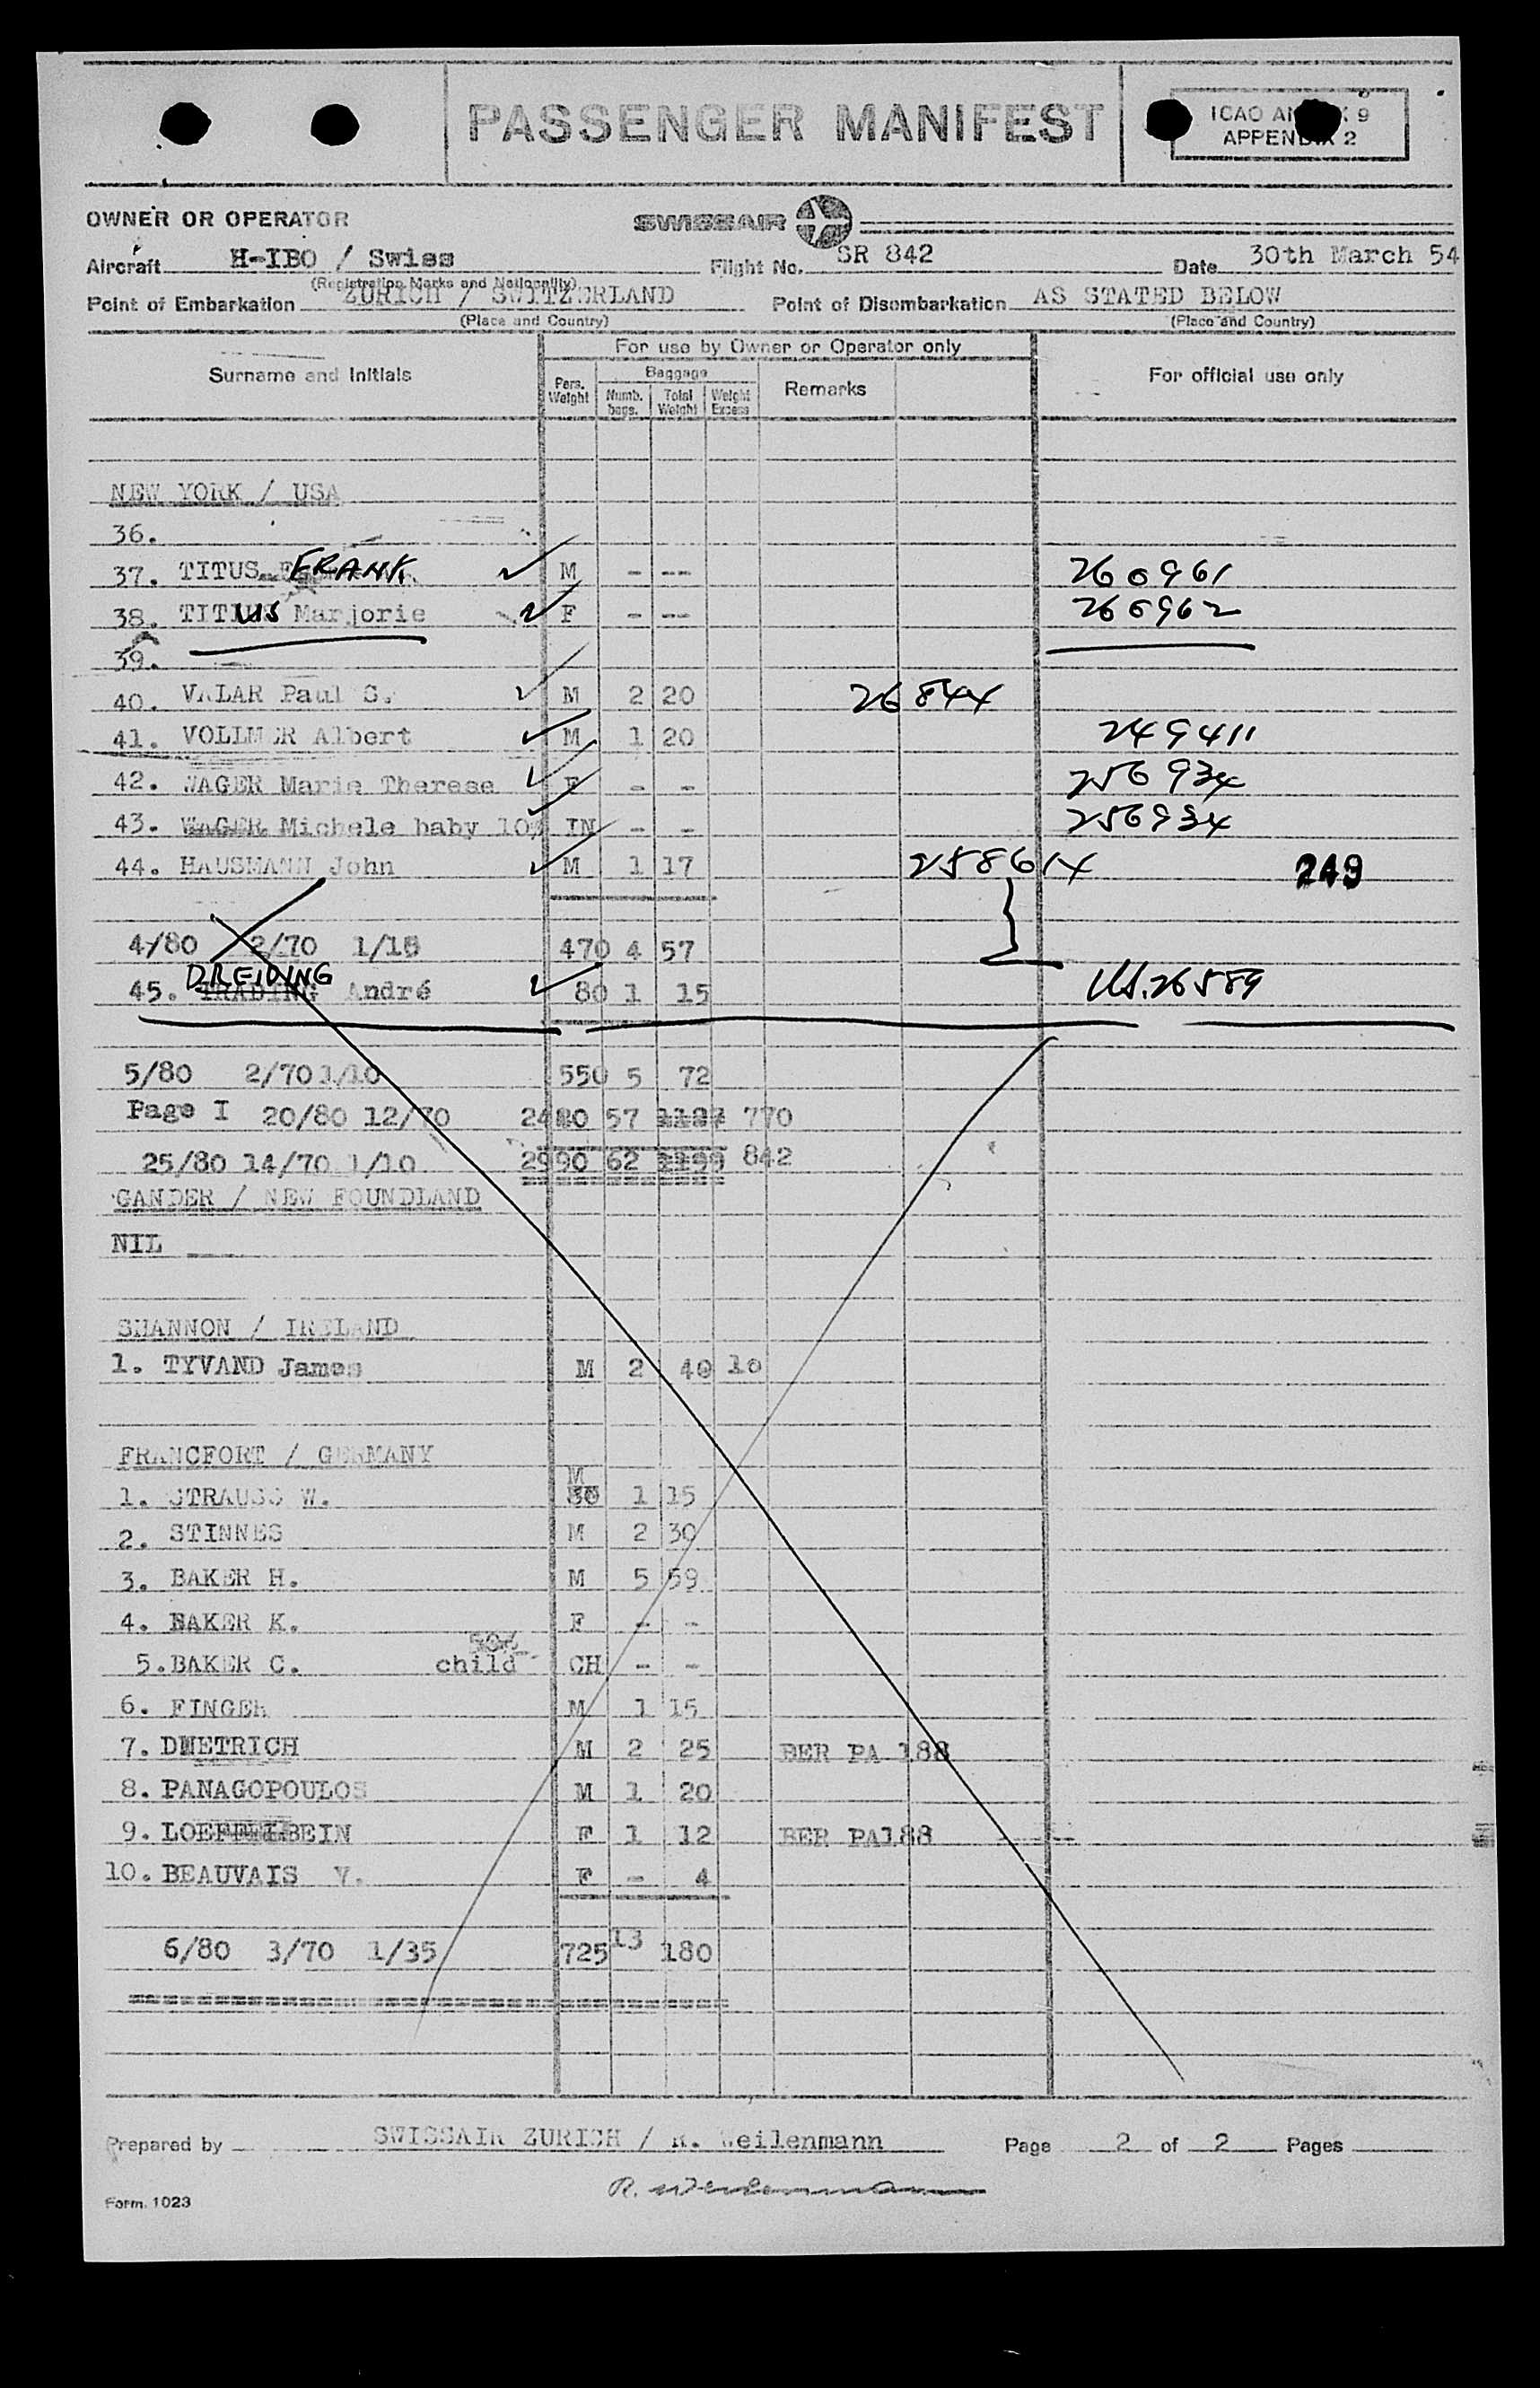 PASSENGER MANIFEST
ICAO
APPENDIX 2
OWNER OR OPERATOR SWISSAIR
Aircraft H-IBO / Swiss Flight No. SR 842 Date 30th March 54
(Registration Marks and Nationality)
Point of Embarkation ZURICH / SWITZERLAND Point of Disembarkation AS STATED BELOW
(Place and Country) (Place and Country)
For use by Owner or Operator only
Surname and Initials Pers. Weight Baggage Numb. bags. Total Weight Weight Excess Remarks For official use only
NEW YORK / USA
36.
37. TITUS FRANK M - -- 260961
38. TITUS Marjorie F - -- 260962
39.
40. VALAR Paul S. M 2 20 26844
41. VOLLMER Albert M 1 20 249411
42. WAGER Marie Therese F - - 256934
43. WAGER Michele baby 10% IN - - 256934
44. HAUSMANN John M 1 17 258614 249
4/80 2/70 1/15 470 4 57
45. DREIDING André 80 1 15 US.26589
5/80 2/70 1/10 550 5 72
Page I 20/80 12/70 57 770
25/80 14/70 1/10 2990 62 842
GANDER / NEW FOUNDLAND
NIL
SHANNON / IRELAND
1. TYVAND James M 2 40 10
FRANCFORT / GERMANY
M
1. STRAUSS W. 1 15
2. STINNES M 2 30
3. BAKER H. M 5 59
4. BAKER K. F - -
50%
5. BAKER C. child CH - -
6. FINGER M 1 15
7. DMETRICH M 2 25 BER PA 188
8. PANAGOPOULOS M 1 20
9. F 1 12 BER PA188
10. BEAUVAIS V. F - 4
6/80 3/70 1/35 725 13 180
Prepared by SWISSAIR ZURICH / R. Weilenmann Page 2 of 2 Pages
R. Weilenmann
Form. 1023